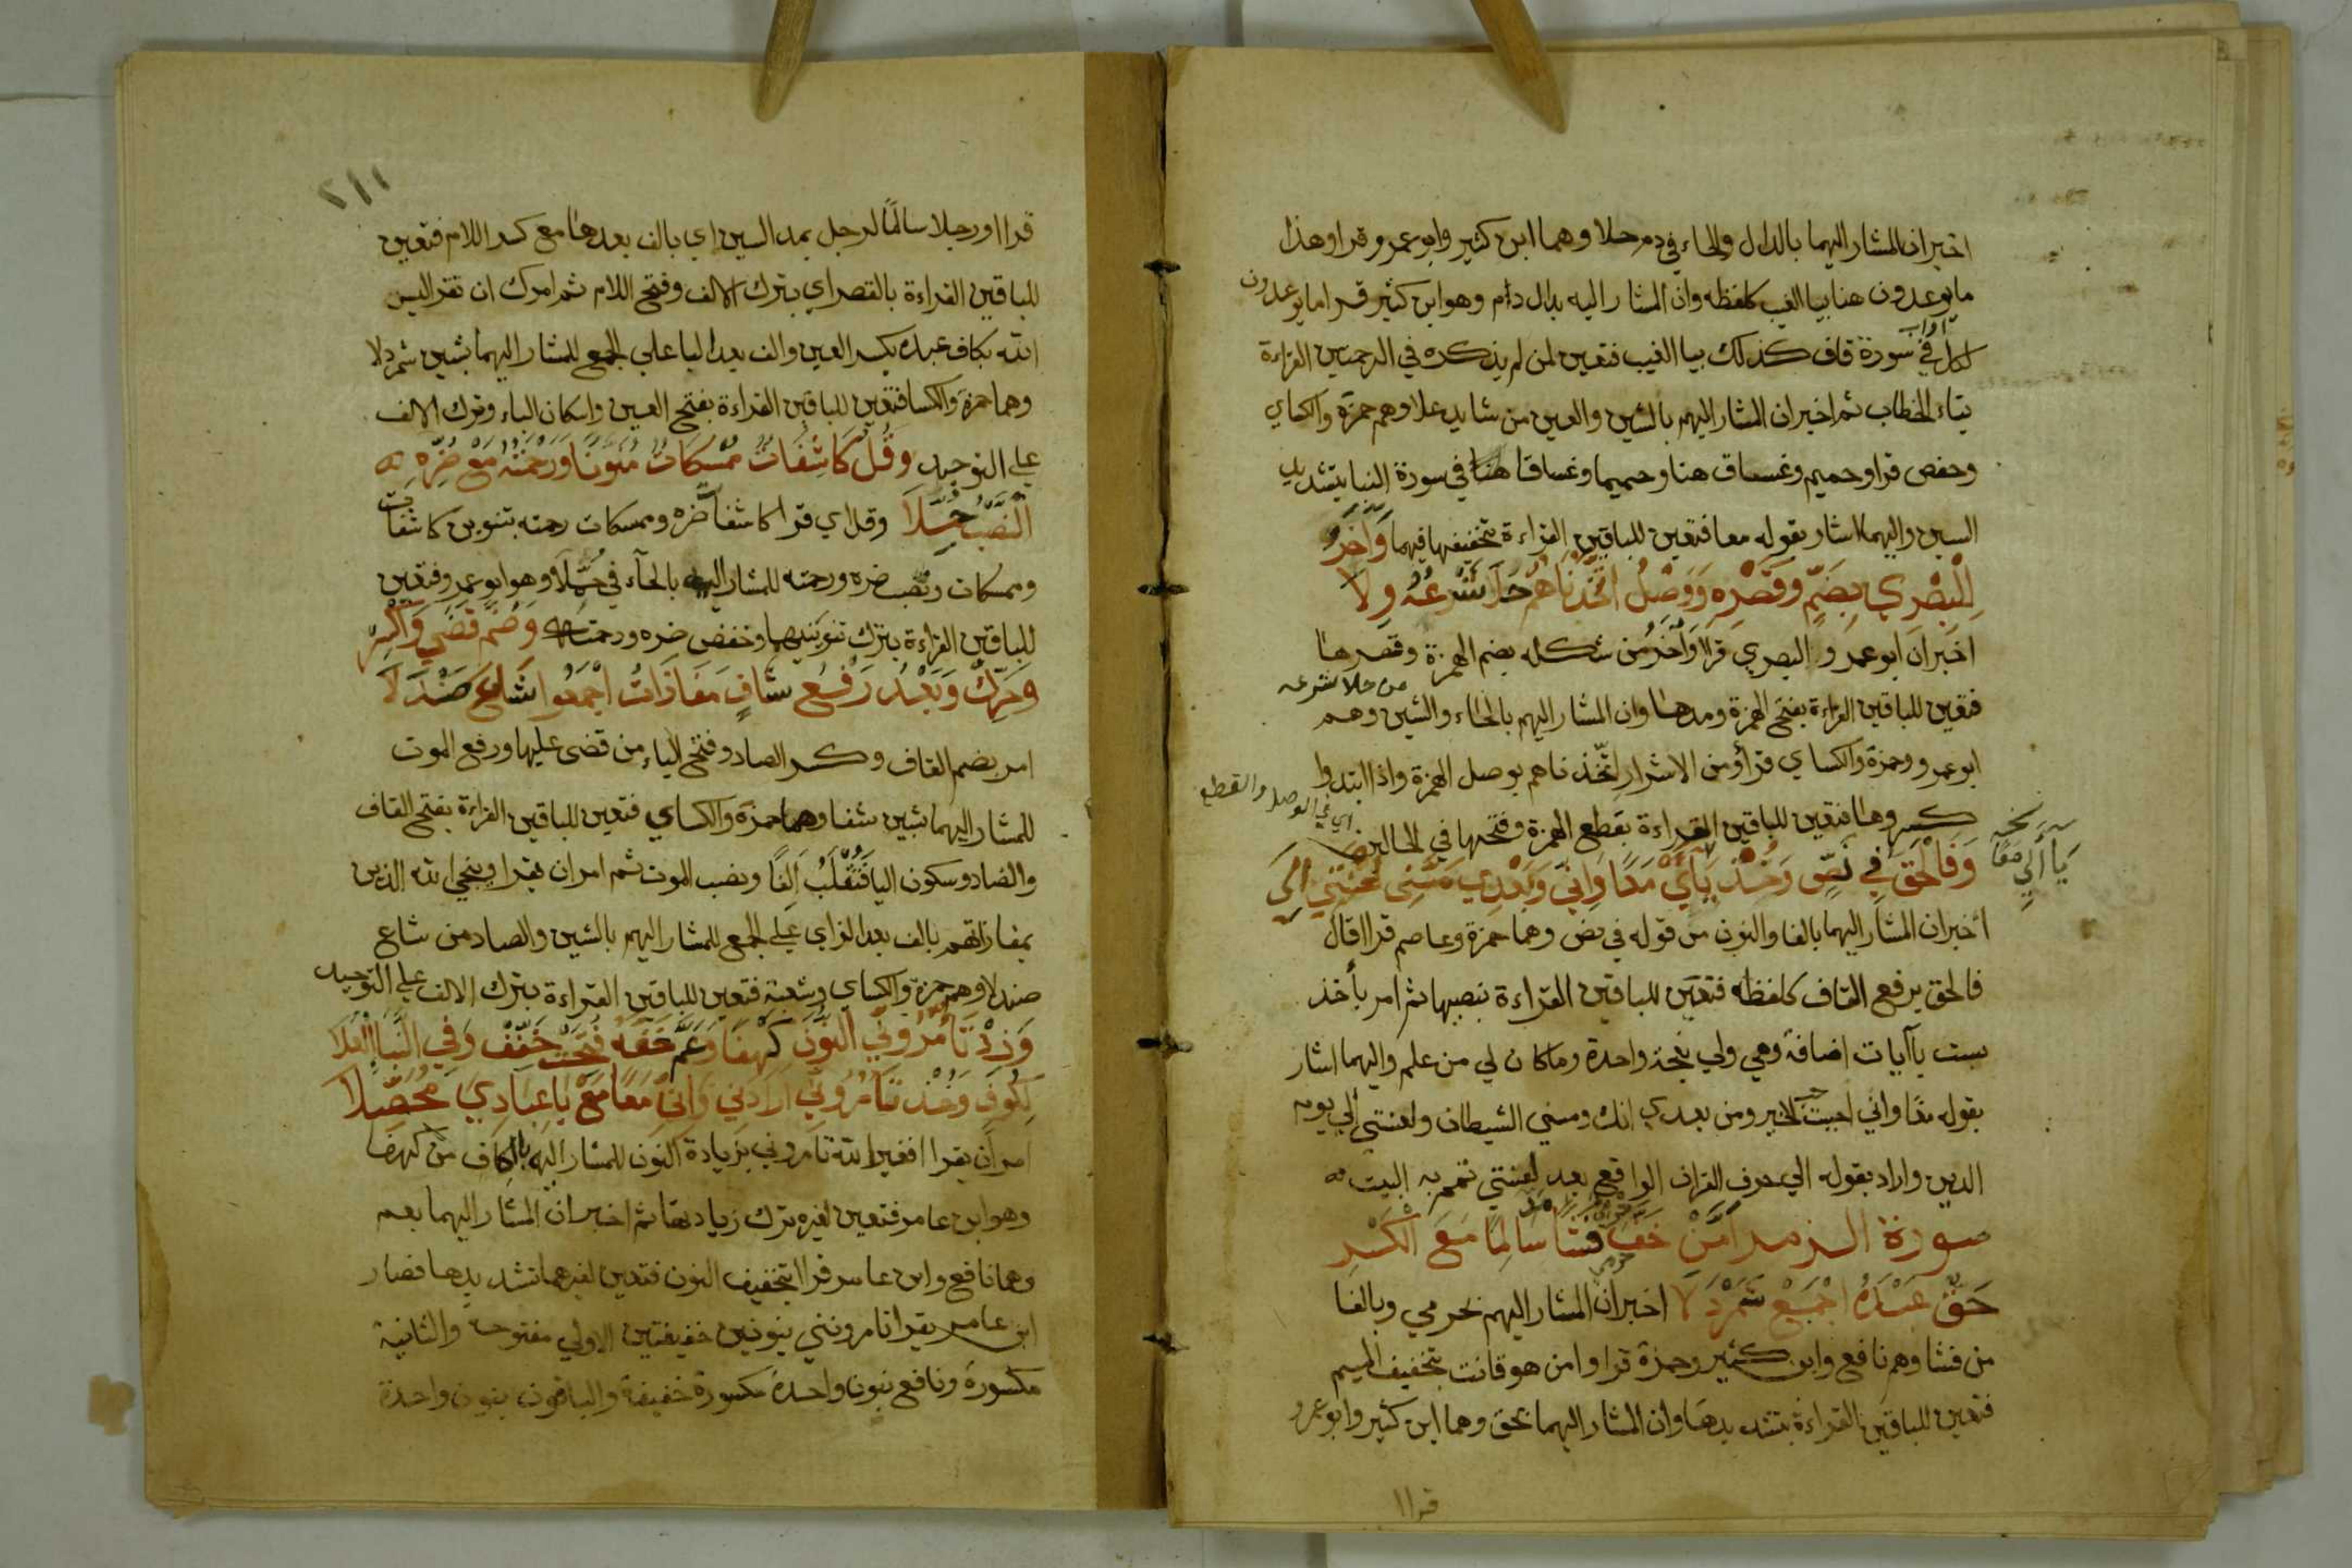 اخبر ان المشار اليهما بالدال والحاء في دم حلا وهما ابن كثير وابو عمرو قرا وهذا
ما يوعدون هنا بيا الغيب كلفظه وان المشار اليه بدال دام وهو ابن كثير قرا ما يوعدون
اواب
لكل في سورة قاف كذلك بيا الغيب فتعين لمن لم يذكره في الترجمتين القراءة
بتاء الخطاب ثم اخبر ان المشار اليهم بالشين والعين من شايد علا وهم حمزة والكساي
وحفص قراو حميم وغساق هنا وحميما وغساقا هنا في سورة النبا بتشديد
السين واليهما اشار بقوله معا فتعين للباقين القراءة بتخفيفها فيهما وَأُخَرُ
لِلْبَصْرِي بِضَمٍّ وقَصْرِهِ وَوَصْلُ اتَّخَذْنَاهُمْ حَلَا شَرْعُهُ وِلَا
اخبر ان ابو عمرو البصري قرا وَأُخَرُ من شكله بضم الهمزة وقصرها
من حلا شرعه
فتعين للباقين القراءة بفتح الهمزة ومدها وان المشار اليهم بالحاء والشين وهم
ابو عمرو وحمزة والكساي قرأو من الاشرار اتّخذناهم بوصل الهمزة واذا ابتدوا
كسروها فتعين للباقين القراءة بقطع الهمزة وفتحها في الحالين
اي في الوصل والقطع
وَفَالْحَقُّ فِي نَصٍّ وَخُذْ يَاءَيْ مَعًا وَإِنِّي وَبَعْدِي مَسَّنِي لَعْنَتِي إِلَى
نخه
يَا أَلِي مَعًا
أخبر ان المشار اليهما بالفا والنون من قوله في نص وهما حمزة وعاصم قراا قال
فالحق برفع القاف كلفظه فتعين للباقين القراءة بنصبها ثم امر بأخذ
ست يآيات اضافة وهي ولي نعجة واحدة وما كان لي من علم واليهما اشار
بقوله معًا واني احببت حب الخير ومن بعدي انك ومسني الشيطان ولعنتي إلي يوم
الدين واراد بقوله الي حرف القران الواقع بعد لعنتي تمم به البيت
سورة الزمر أَمَنْ خَفَّ فَشَا سَالِمًا مَعَ الْكَسْرِ
حَقٌّ عَبْدَهُ اجْمَعْ شَمَرْدَلَا اخبر ان المشار اليهم بحرمي وبالفا
من فشا وهم نافع وابن كثير وحمزة قراو امن هو قانت بتخفيف الميم
فتعين للباقين القراءة بتشديدها وان المشار اليهما بحق وهما ابن كثير وابو عمرو
قراا
٢١١
قراا ورجلا سالمًا لرجل بمد السين اي بالف بعدها مع كسر اللام فتعين
للباقين القراءة بالقصر اي بترك الالف وفتح اللام ثم امرك ان تقرا اليس
الله بكاف عبده بكسر العين والف بعد البا علي الجمع للمشار اليهما بشين شمردلا
وهما حمزة والكسا فتعين للباقين القراءة بفتح العين واسكان الباء وترك الالف
علي التوحيد وَقُلْ كَاشِفَاتٌ مُمْسِكَاتٌ مُنَوِّنًا وَرَحْمَتِهُ مَعْ ضُرِّهِ
النَّصْبُ حُمِّلَا وقل اي قرا كاشفات ضره وممسكات رحمته بتنوين كاشفات
وممسكات ونصب ضره ورحمته للمشار اليه بالحآء في حُمِّلَا وهو ابو عمرو فتعين
للباقين القراءة بترك تنوينيهما وخفض ضره ورحمته وَضُمَّ قَضَى وَاكْسِرْ
وَحَرِّكْ وَبَعْدُ رَفْعُ شَافٍ مَفَازَاتُ اجْمَعُوا شَاعَ صَنْدَلَا
امر بضم القاف وكسر الصاد وفتح الياء من قضى عليها ورفع الموت
للمشار اليهما بشين شفا وهما حمزة والكساي فتعين للباقين القراءة بفتح القاف
والضاد وسكون اليا فتُقلَبُ اَلِفًا ونصب الموت ثم امر ان يقرا وينجي الله الذين
بمفازاتهم بالف بعد الزاي علي الجمع للمشار اليهم بالشين والصاد من شاع
صندلا وهم حمزة والكساي وشعبة فتعين للباقين القراءة بترك الالف علي التوحيد
وَزِدْ تَأْمُرُونِي النُّونَ كَهْفًا وَعَمَّ خِفُّهُ فُتِّحَتْ خَفِّفْ وَفِي النَّبَإِ الْعُلَا
لِكُوفٍ وَخُذْ تَأْمُرُونِي أَرَادَنِي وَإِنِّي مَعًا مَعْ يَا عِبَادِي مُحَصِّلَا
امر ان يقرا افغير الله تامروني بزيادة النون للمشار اليه بالكاف من كهفا
وهو ابن عامر فتعين لغيره ترك زيادتها ثم اخبر ان المشار اليهما بعم
وهما نافع وابن عامر قراا بتخفيف النون فتعين لغيرهما تشديدها فصار
ابن عامر يقرا تامرونني بنونين خفيفتين الاولي مفتوحة والثانية
مكسورة ونافع بنون واحدة مكسورة خفيفة والباقون بنون واحدة